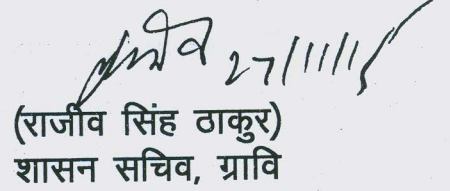 27/11/15
(राजीव सिंह ठाकुर)
शासन सचिव, ग्रावि